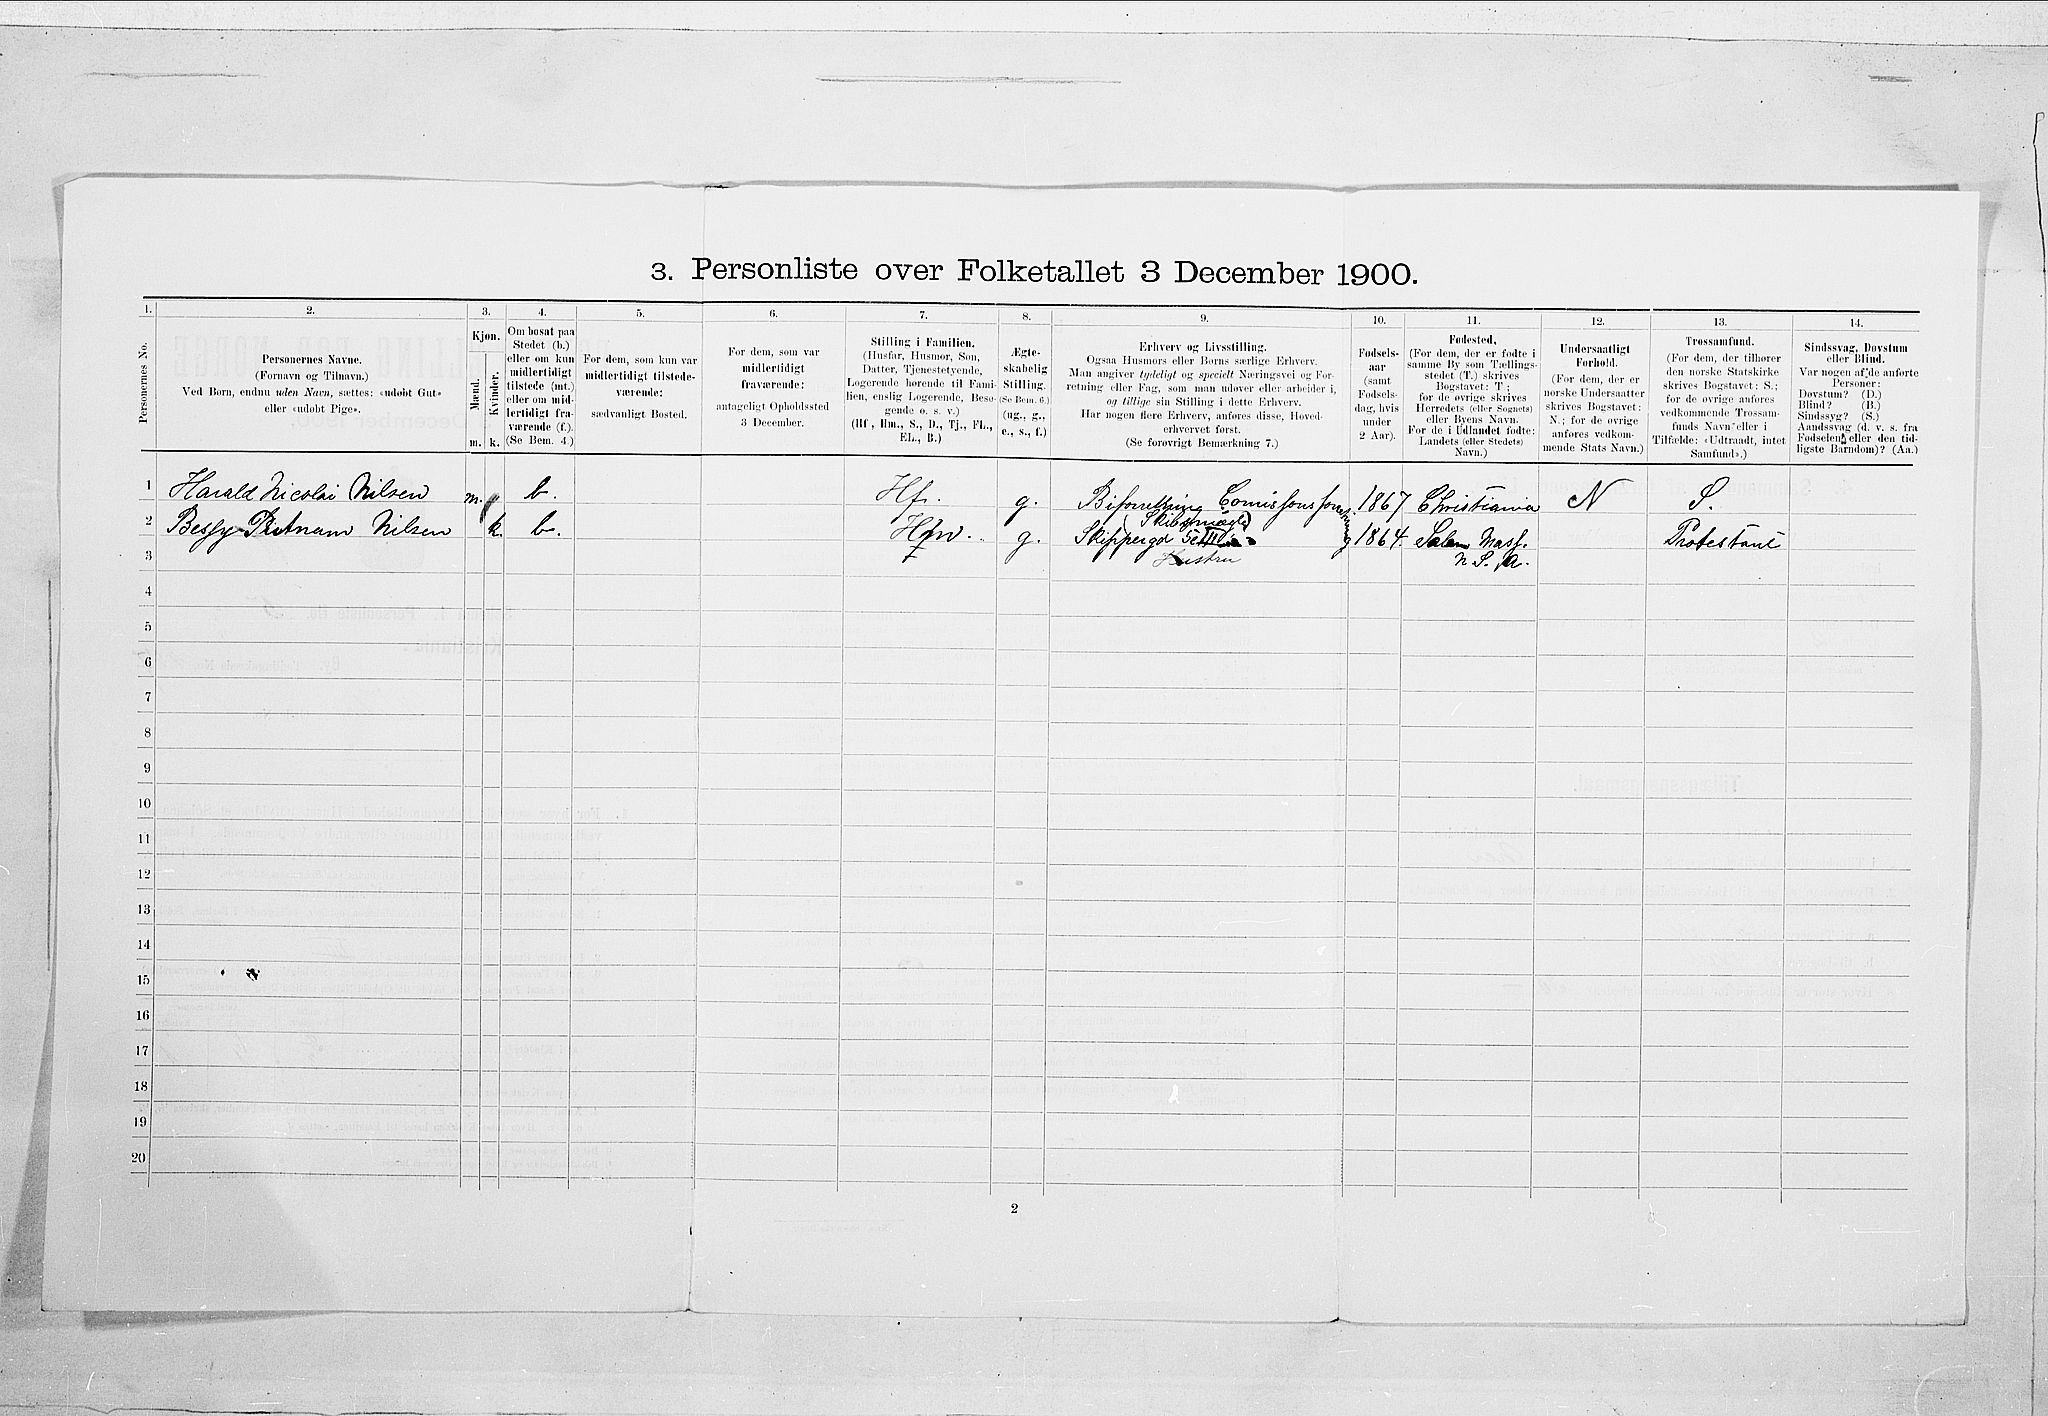 3. Personliste over Folketallet 3 December 1900.
1. 2. 3. 4. 5. 6. 7. 8. 9. 10. 11. 12. 13. 14.
Personernes No.
Personernes Navne.
(Fornavn og Tilnavn.)
Ved Børn, endnu uden Navn, sættes: «udøbt Gut»
eller «udøbt Pige».
Kjøn.
Mænd.
Kvinder.
m. k.
Om bosat paa
Stedet (b.)
eller om kun
midlertidigt
tilstede (mt.)
eller om mid-
lertidigt fra-
værende (f.).
(Se Bem. 4.)
For dem, som kun var
midlertidigt tilstede-
værende:
sædvanligt Bosted.
For dem, som var
midlertidigt
fraværende:
antageligt Opholdssted
3 December.
Stilling i Familien.
(Husfar, Husmor, Søn,
Datter, Tjenestetyende,
Logerende hørende til Fami-
lien, enslig Logerende, Besø-
gende o. s. v.)
(Hf., Hm., S., D., Tj., FL.,
EL., B.)
Ægte-
skabelig
Stilling.
(Se Bem. 6.)
(ug., g.,
e., s., f.)
Erhverv og Livsstilling.
Ogsaa Husmors eller Børns særlige Erhverv.
Man angiver tydeligt og specielt Næringsvei og For-
retning eller Fag, som man udøver eller arbeider i,
og tillige sin Stilling i dette Erhverv.
Har nogen flere Erhverv, anføres disse, Hoved-
erhvervet først.
(Se forøvrigt Bemærkning 7.)
Fødsels-
aar
(samt
Fødsels-
dag, hvis
under
2 Aar).
Fødested,
(For dem, der er fødte i
samme By som Tællings-
stedet (T.) skrives
Bogstavet: T;
for de øvrige skrives
Herredets (eller Sognets)
eller Byens Navn.
For de i Udlandet fødte:
Landets (eller Stedets)
Navn.)
Undersaatligt
Forhold.
(For dem, der er
norske Undersaatter
skrives Bogstavet:
N.; for de øvrige
anføres vedkom-
mende Stats Navn.)
Trossamfund.
(For dem, der tilhører
den norske Statskirke
skrives Bogstavet: S.;
for de øvrige anføres
vedkommende Trossam-
funds Navn eller i
Tilfælde: «Udtraadt, intet
Samfund».)
Sindssvag, Døvstum
eller Blind.
Var nogen af de anførte
Personer:
Døvstum? (D.)
Blind? (B.)
Sindssyg? (S.)
Aandssvag (d. v. s. fra
Fødselen eller den tid-
ligste Barndom)? (Aa.)
1 Harald Nicolai Nilsen m. b. Hf. g. 1867 Christiania N S.
2 Bessy Putnam Nilsen k. b. Hm. g. Skippergd 1864. Salem Mass. Protestant
Hustru
3
4
5
6
7
8
9
10
11
12
13
14
15
16
17
18
19
20
2